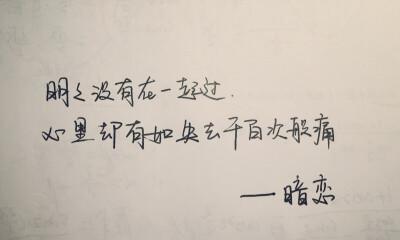 明々没有在一起过.
心里却有如失去千百次般痛
——暗恋